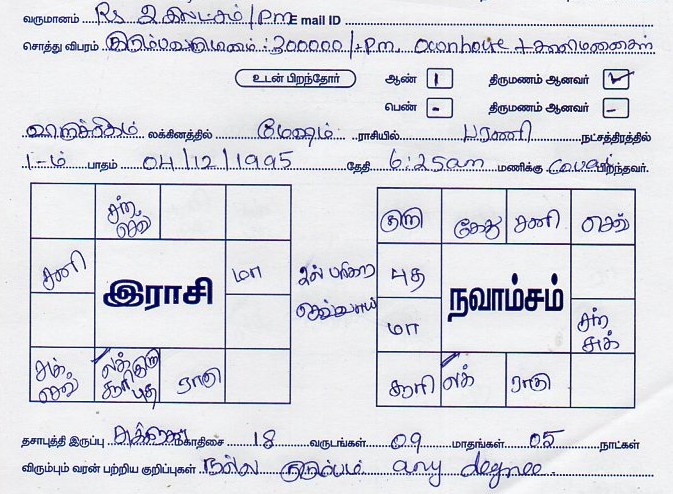 வருமானம் Rs 2 இலட்சம் / P.M E mail ID
சொத்து விபரம் குடும்பவருமானம் : 300000/- P.m. Own house +
உடன் பிறந்தோர் ஆண் 1 திருமணம் ஆனவர் ✓
பெண் - திருமணம் ஆனவர் -
லக்கினத்தில் மேஷம் ராசியில் பரணி நட்சத்திரத்தில்
1-ம் பாதம் 04/12/1995 தேதி 6:25am மணிக்கு பிறந்தவர்.
சந் குரு கேது சனி செவ்
சனி மா புத
இராசி நவாம்சம்
மா சந் சுக்
சுக் செவ் லக் குரு சூரி புத ராகு சூரி லக் ராகு
தசாபுத்தி இருப்பு சுக்கிர மகாதிசை 18 வருடங்கள் 09 மாதங்கள் 05 நாட்கள்
விரும்பும் வரன் பற்றிய குறிப்புகள் நல்ல குடும்பம் any degree